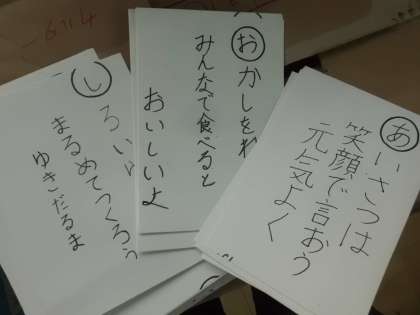 あいさつは
笑顔で言おう
元気よく
おかしを
みんなで食べると
おいしいよ
しろい
まるめてつくろう
ゆきだるま